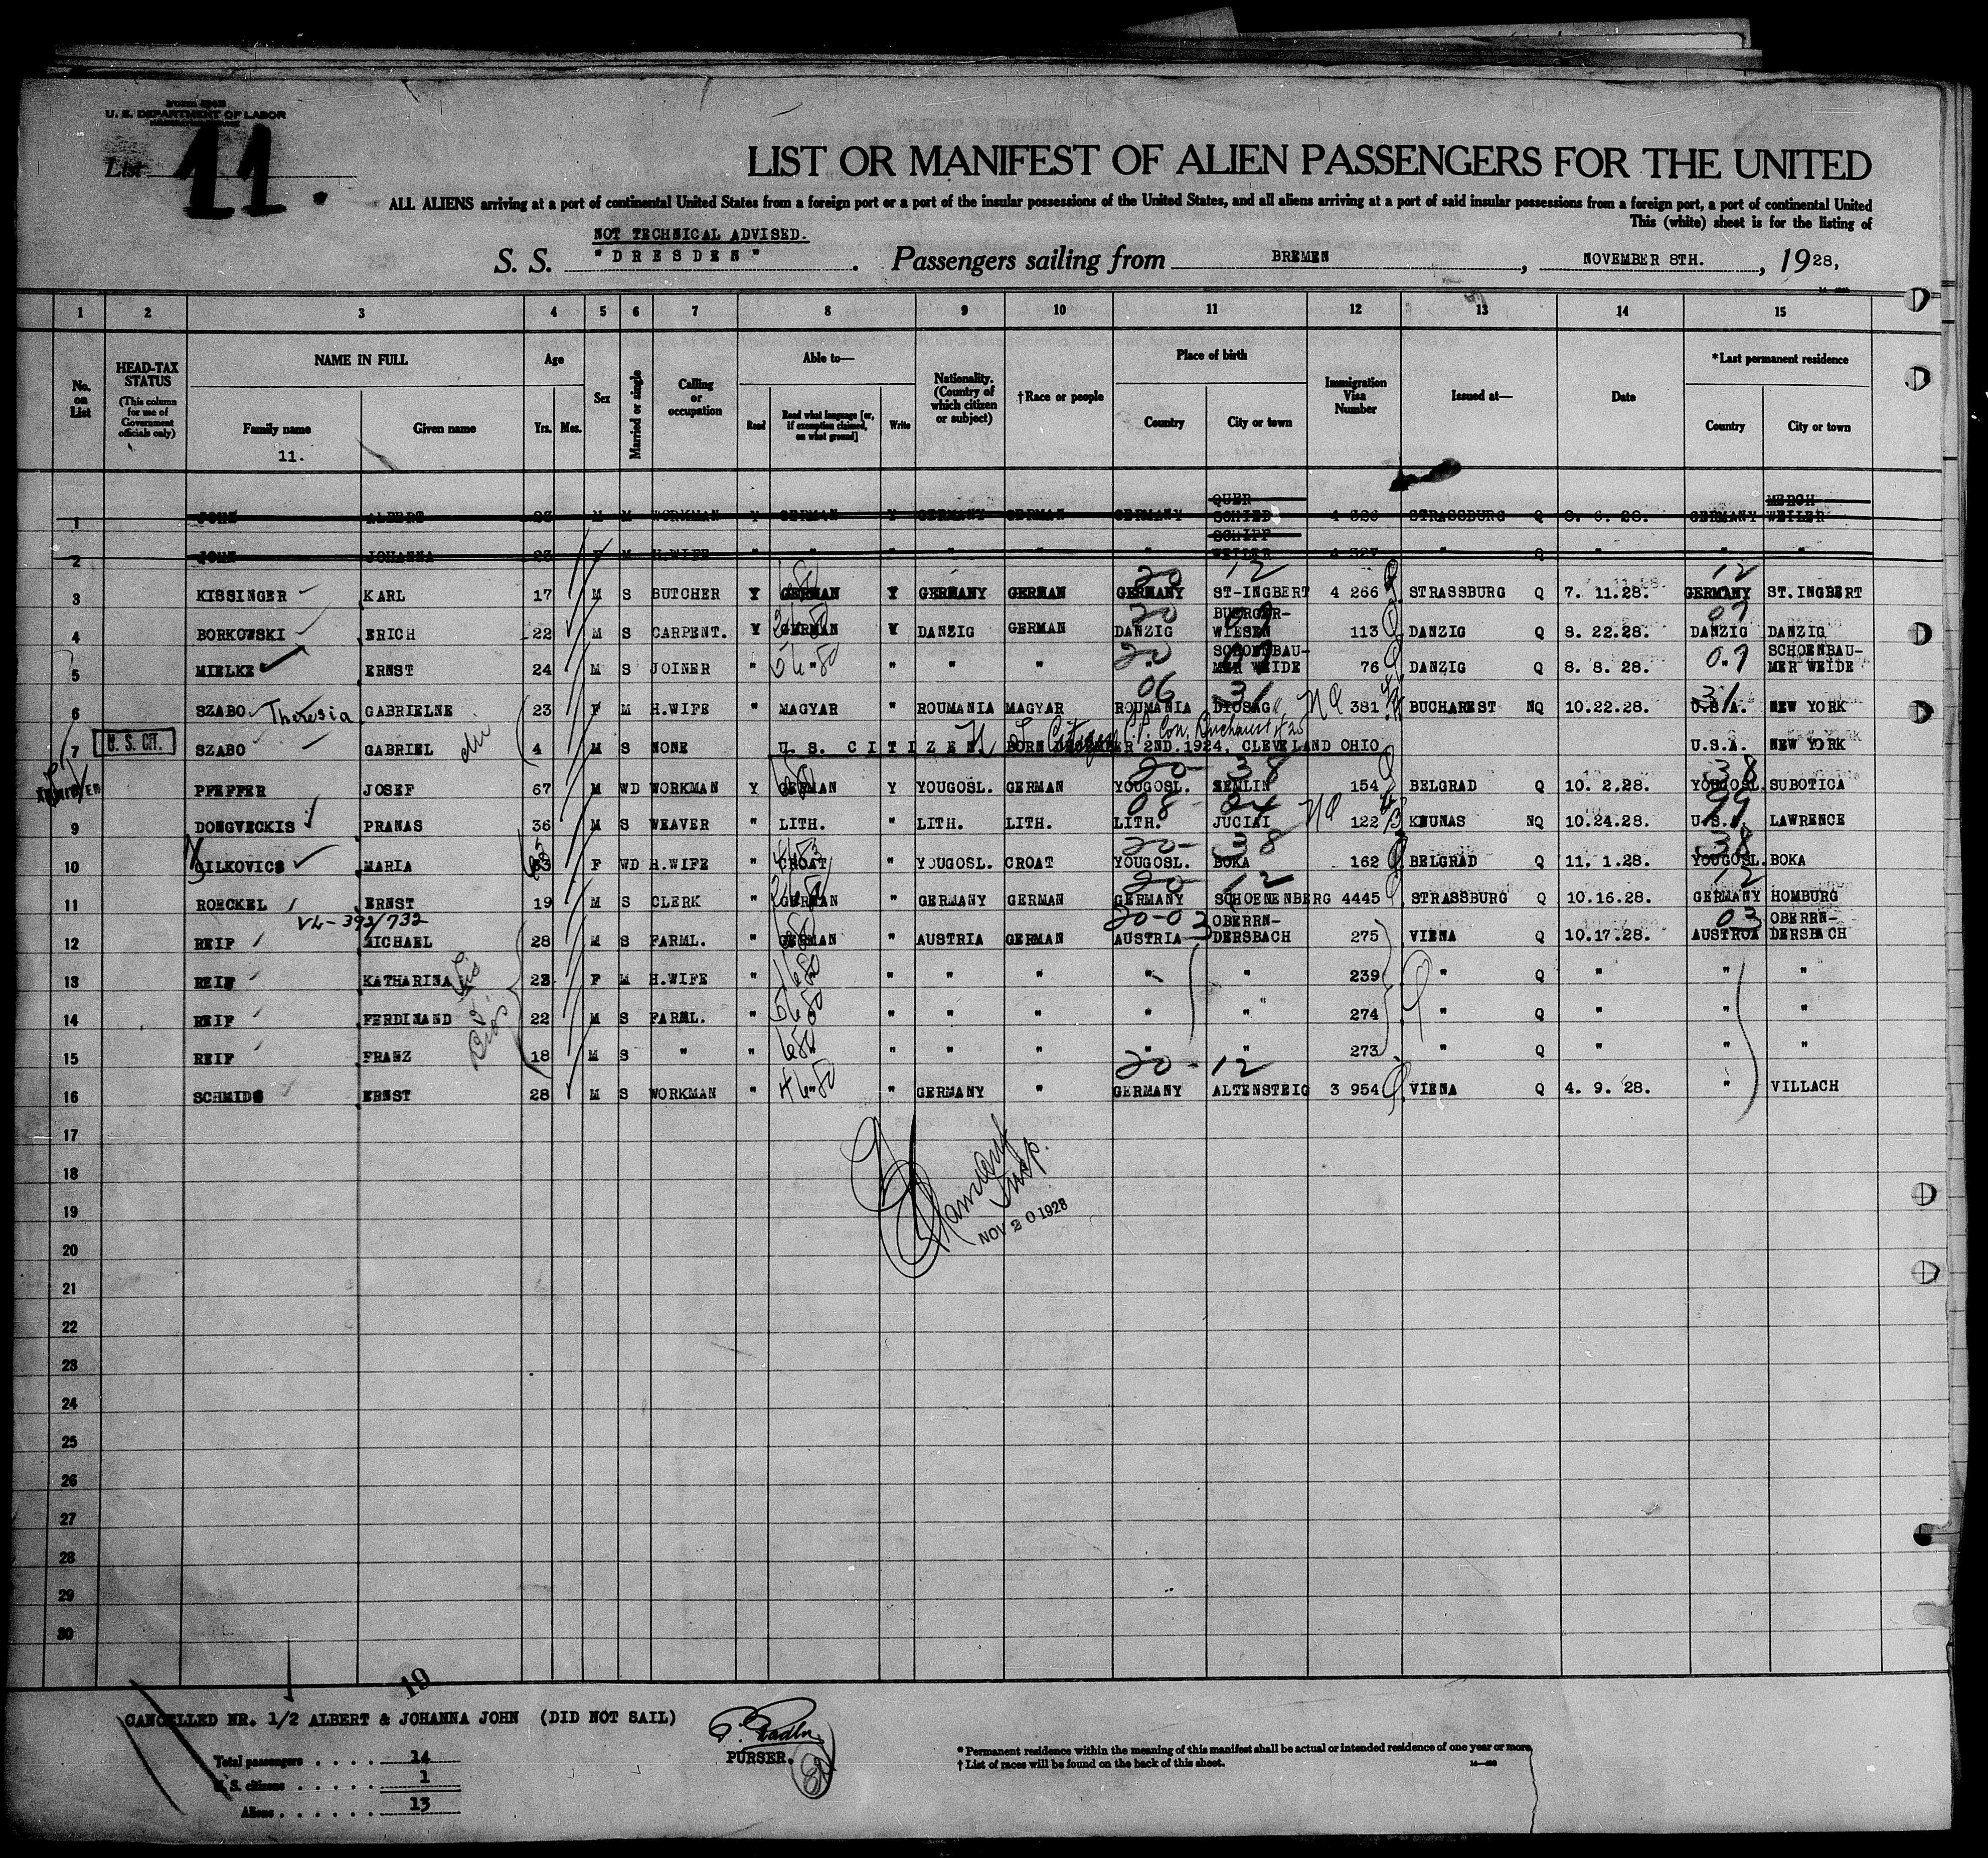 U. S. DEPARTMENT OF LABOR
List 11.
LIST OR MANIFEST OF ALIEN PASSENGERS FOR THE UNITED
ALL ALIENS arriving at a port of continental United States from a foreign port or a port of the insular possessions of the United States, and all aliens arriving at a port of said insular possessions from a foreign port, a port of continental United
This (white) sheet is for the listing of
NOT TECHNICAL ADVISED.
S. S. "DRESDEN". Passengers sailing from BREMEN, NOVEMBER 8TH., 1928,
1 2 3 4 5 6 7 8 9 10 11 12 13 14 15
No. on List
HEAD-TAX STATUS (This column for use of Government officials only)
NAME IN FULL Family name Given name
11.
Age Yrs. Mos.
Sex
Married or single
Calling or occupation
Able to— Read Read what language [or, if exemption claimed, on what ground] Write
Nationality. (Country of which citizen or subject)
†Race or people
Place of birth Country City or town
Immigration Visa Number
Issued at—
Date
*Last permanent residence Country City or town
1 JOHN ALBERT 23 M M WORKMAN Y GERMAN Y GERMANY GERMAN GERMANY QUER SCHIED 4 326 STRASSBURG Q 8. 6. 28. GERMANY MERCH WEILER
2 JOHN JOHANNA 23 F M H.WIFE " " " " " " SCHIFF WEILER 4 327 " Q " " "
3 KISSINGER KARL 17 M S BUTCHER Y GERMAN Y GERMANY GERMAN GERMANY ST-INGBERT 4 266 STRASSBURG Q 7. 11.28. GERMANY ST.INGBERT
4 BORKOWSKI ERICH 22 M S CARPENT. Y GERMAN Y DANZIG GERMAN DANZIG BUERGER-WIESEN 113 DANZIG Q 8. 22.28. DANZIG DANZIG
5 MIELKE ERNST 24 M S JOINER " " " " " " SCHOENBAU-MER WEIDE 76 DANZIG Q 8. 8. 28. " SCHOENBAU-MER WEIDE
6 SZABO Theresia GABRIELNE 23 F M H.WIFE " MAGYAR " ROUMANIA MAGYAR ROUMANIA DIOSAG 381 BUCHAREST NQ 10.22.28. U.S.A. NEW YORK
7 U. S. CIT. SZABO GABRIEL 4 M S NONE U. S. CITIZEN, BORN DECEMBER 2ND.1924, CLEVELAND OHIO U.S.A. NEW YORK
PFEFFER JOSEF 67 M WD WORKMAN Y GERMAN Y YOUGOSL. GERMAN YOUGOSL. ZEMLIN 154 BELGRAD Q 10. 2.28. YOUGOSL. SUBOTICA
9 DONGVECKIS PRANAS 36 M S WEAVER " LITH. " LITH. LITH. LITH. JUCIAI 122 KNUNAS NQ 10.24.28. U.S.A. LAWRENCE
10 GILKOVICS MARIA F WD H.WIFE " CROAT " YOUGOSL. CROAT YOUGOSL. BOKA 162 BELGRAD Q 11. 1.28. YOUGOSL. BOKA
11 ROECKEL ERNST 19 M S CLERK " GERMAN " GERMANY GERMAN GERMANY SCHOENENBERG 4445 STRASSBURG Q 10.16.28. GERMANY HOMBURG
VL-392/732
12 REIF MICHAEL 28 M S FARML. " GERMAN " AUSTRIA GERMAN AUSTRIA OBERRN-DERSBACH 275 VIENA Q 10.17.28. AUSTRIA OBERRN-DERSBACH
13 REIF KATHARINA 23 F M H.WIFE " " " " " " 239 " Q " " "
14 REIF FERDINAND 22 M S FARML. " " " " " " 274 " Q " " "
15 REIF FRANZ 18 M S " " " " " " " " 273 " Q " " "
16 SCHMIDS ERNST 28 M S WORKMAN " " " GERMANY " GERMANY ALTENSTEIG 3 954 VIENA Q 4. 9. 28. " VILLACH
17
18
19
Insp.
NOV 20 1928
20
21
22
23
24
25
26
27
28
29
30
19
CANCELLED NR. 1/2 ALBERT & JOHANNA JOHN (DID NOT SAIL)
PURSER.
Total passengers . . . . 14
U. S. citizens . . . . . 1
Aliens . . . . . . 13
* Permanent residence within the meaning of this manifest shall be actual or intended residence of one year or more.
† List of races will be found on the back of this sheet.